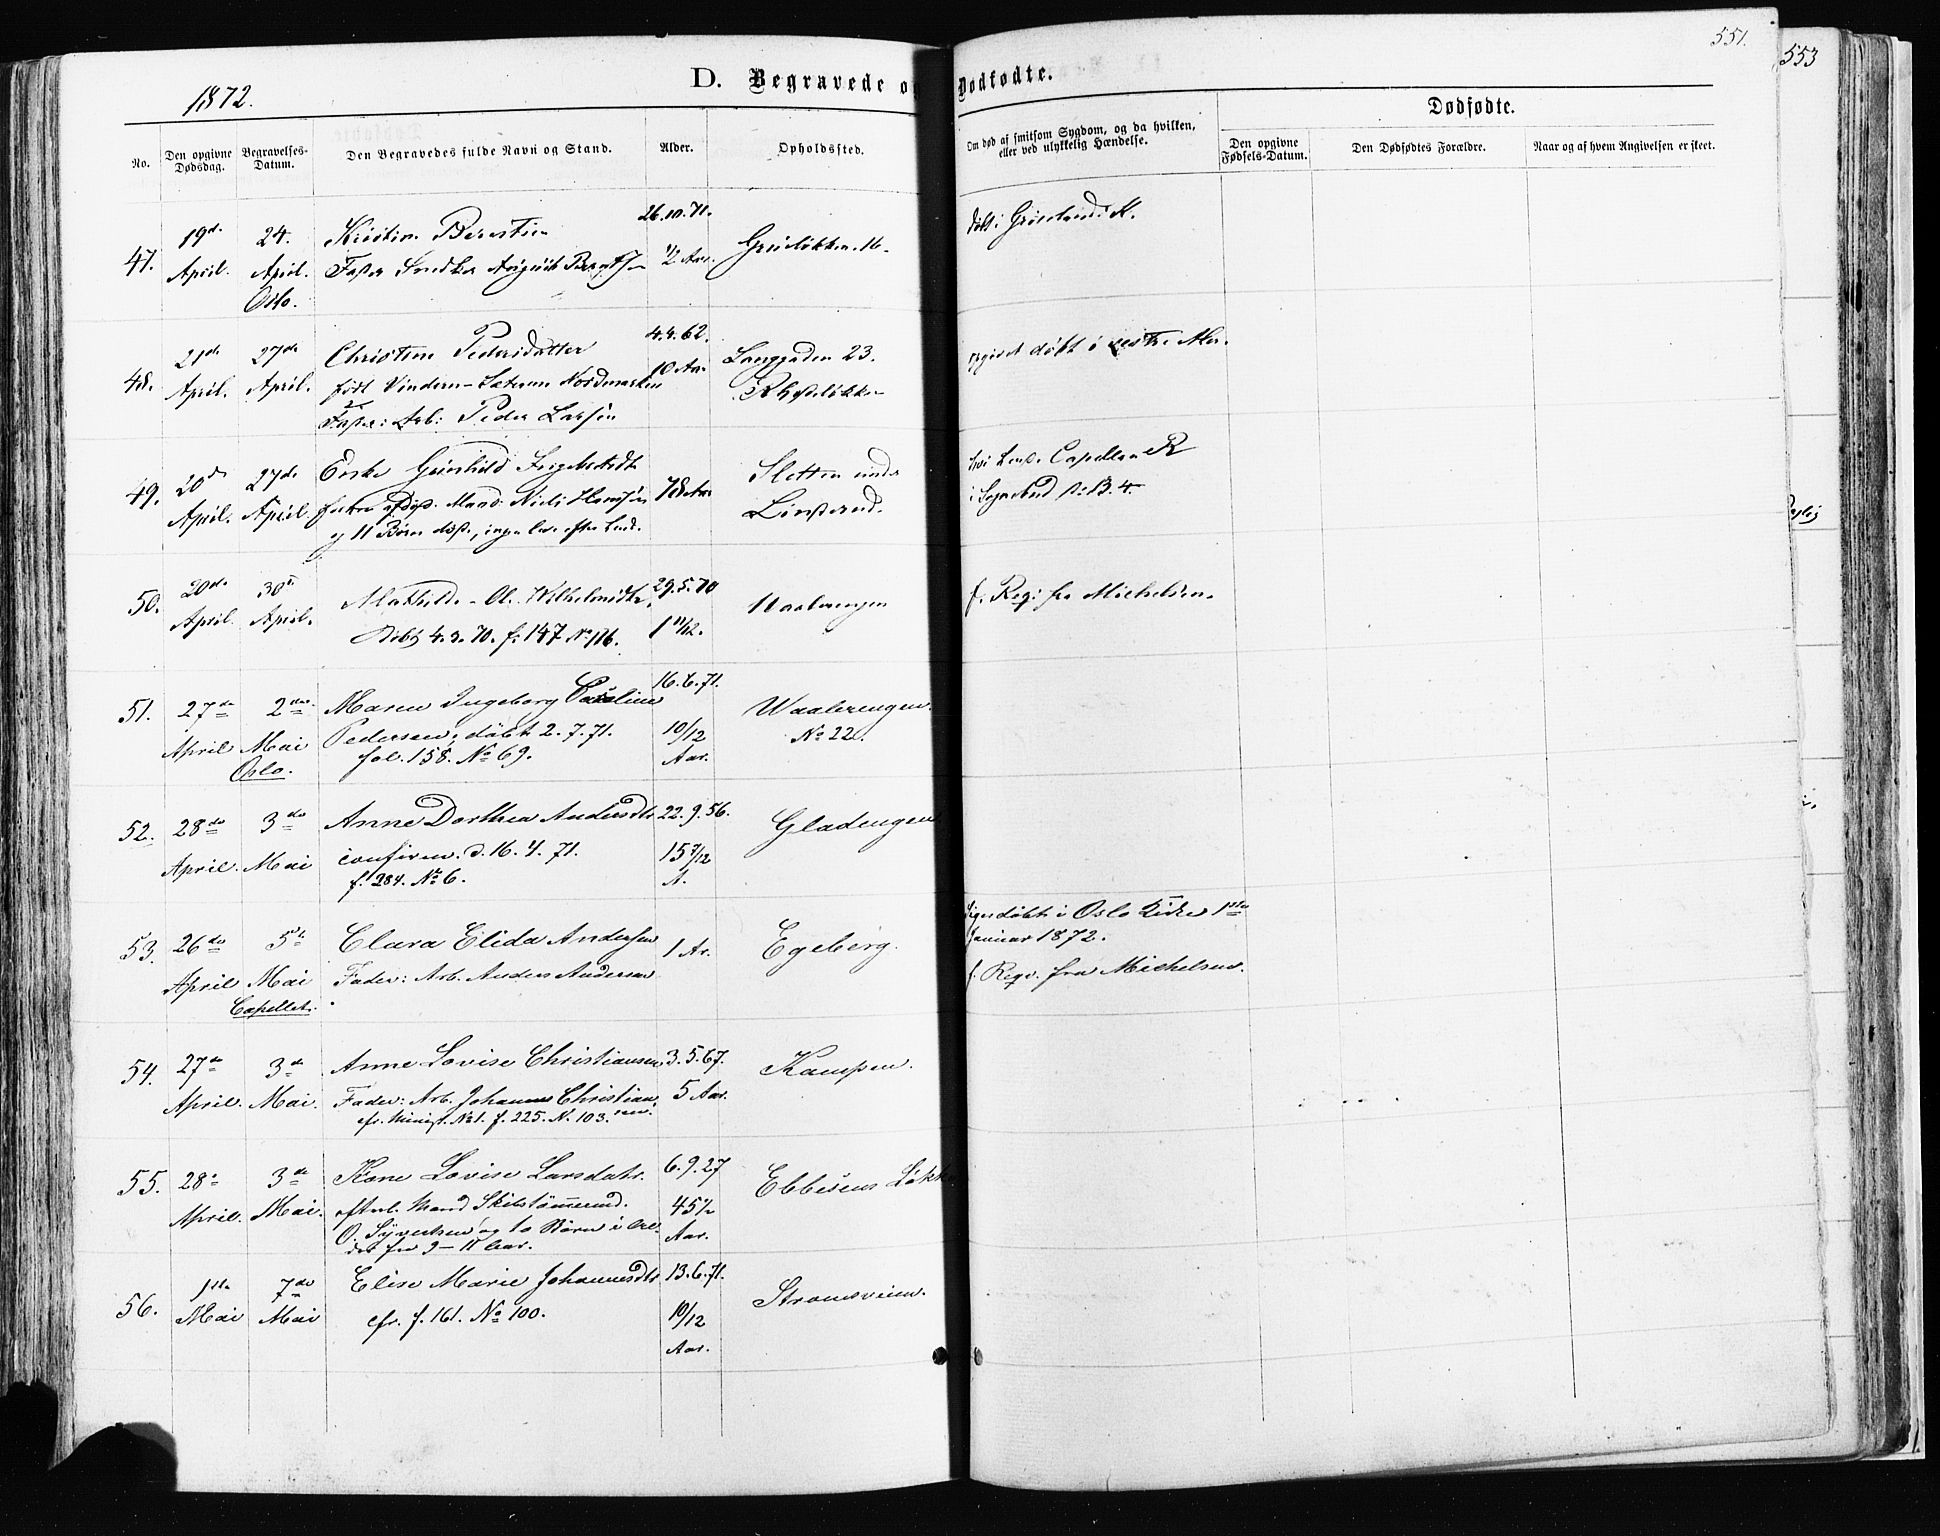 551.
553
1872.
D. Begravede og Dødfødte.
Dødfødte.
No.
Den opgivne Dødsdag.
Begravelses-Datum.
Den Begravedes fulde Navn og Stand.
Alder.
Opholdssted.
Om død af smitsom Sygdom, og da hvilken,
eller ved ulykkelig Hændelse.
Den opgivne Fødsels-Datum.
Den Dødfødtes Forældre.
Naar og af hvem Angivelsen er skeet.
47. 19de April. 24. April. Oslo.
Kristine Berntsen
Fader Snedker August Berntsen
26.10.71.
1/2 Aar.
Grüsløkken 16
døbt i Grønlands K.
48. 21de April. 27de April.
Christine Pedersdatter
født Vindern-Sæteren Nordmarken
Fader: Arb: Peder Larsen
4.4.62.
10 Aar
Langgaden 23.
døbt i vestre Aker.
49. 20d April. 27de April
Enke
Mand Niels Hansen
og 11 Børn døde, ingen
78 Aar
Sletten under
i Sognebud
50. 20de April 30te April.
Mathilde Ol. Wilhelmsdtr.
Døbt 4.3.70. f. 147 No 116.
29.5.70
1 11/12.
Vaalerengen
f. Regi fra Michelsen.
51. 27de April 2den Mai Oslo.
Maren Ingeborg
Pedersen, døbt 2.7.71.
fol. 158. No 69.
16.6.71.
10/12
Aar.
Waalerengen
No 22.
52. 28de April. 3de Mai
Anne Dorthea Andersdtr.
confirm. d. 16.4.71.
f. 284. No 6.
22.9.56.
15 7/12
A.
Gladengen
53. 26de April 5te Mai Capellet.
Clara Elida Andersen
Fader: Arb. Anders Andersen
1 Ar.
Egeberg.
siges døbt i Oslo Kirke 1ste
Januar 1872.
f. Regv. fra Michelsen.
54. 27de April. 3de Mai.
Anne Lovise Christiansen
Fader: Arb. Johannes Christian
cfr. Minist. No 1. f. 225. N. 103. sen.
3.5.67.
5 Aar.
Kampen.
55. 28 April. 3de Mai.
Kone Lovise Larsdatr.
efterl. Mand Skibstømmermd.
O. Syvertsen og to Børn i Al-
der fra 9-11 Aar.
6.9.27
45
Aar.
Ebbesens Løkke
56. 1ste Mai 7de Mai
Elise Marie Johannesdtr
cfr. f. 161. No 100.
13.6.71.
10/12
Aar.
Strømsveien.